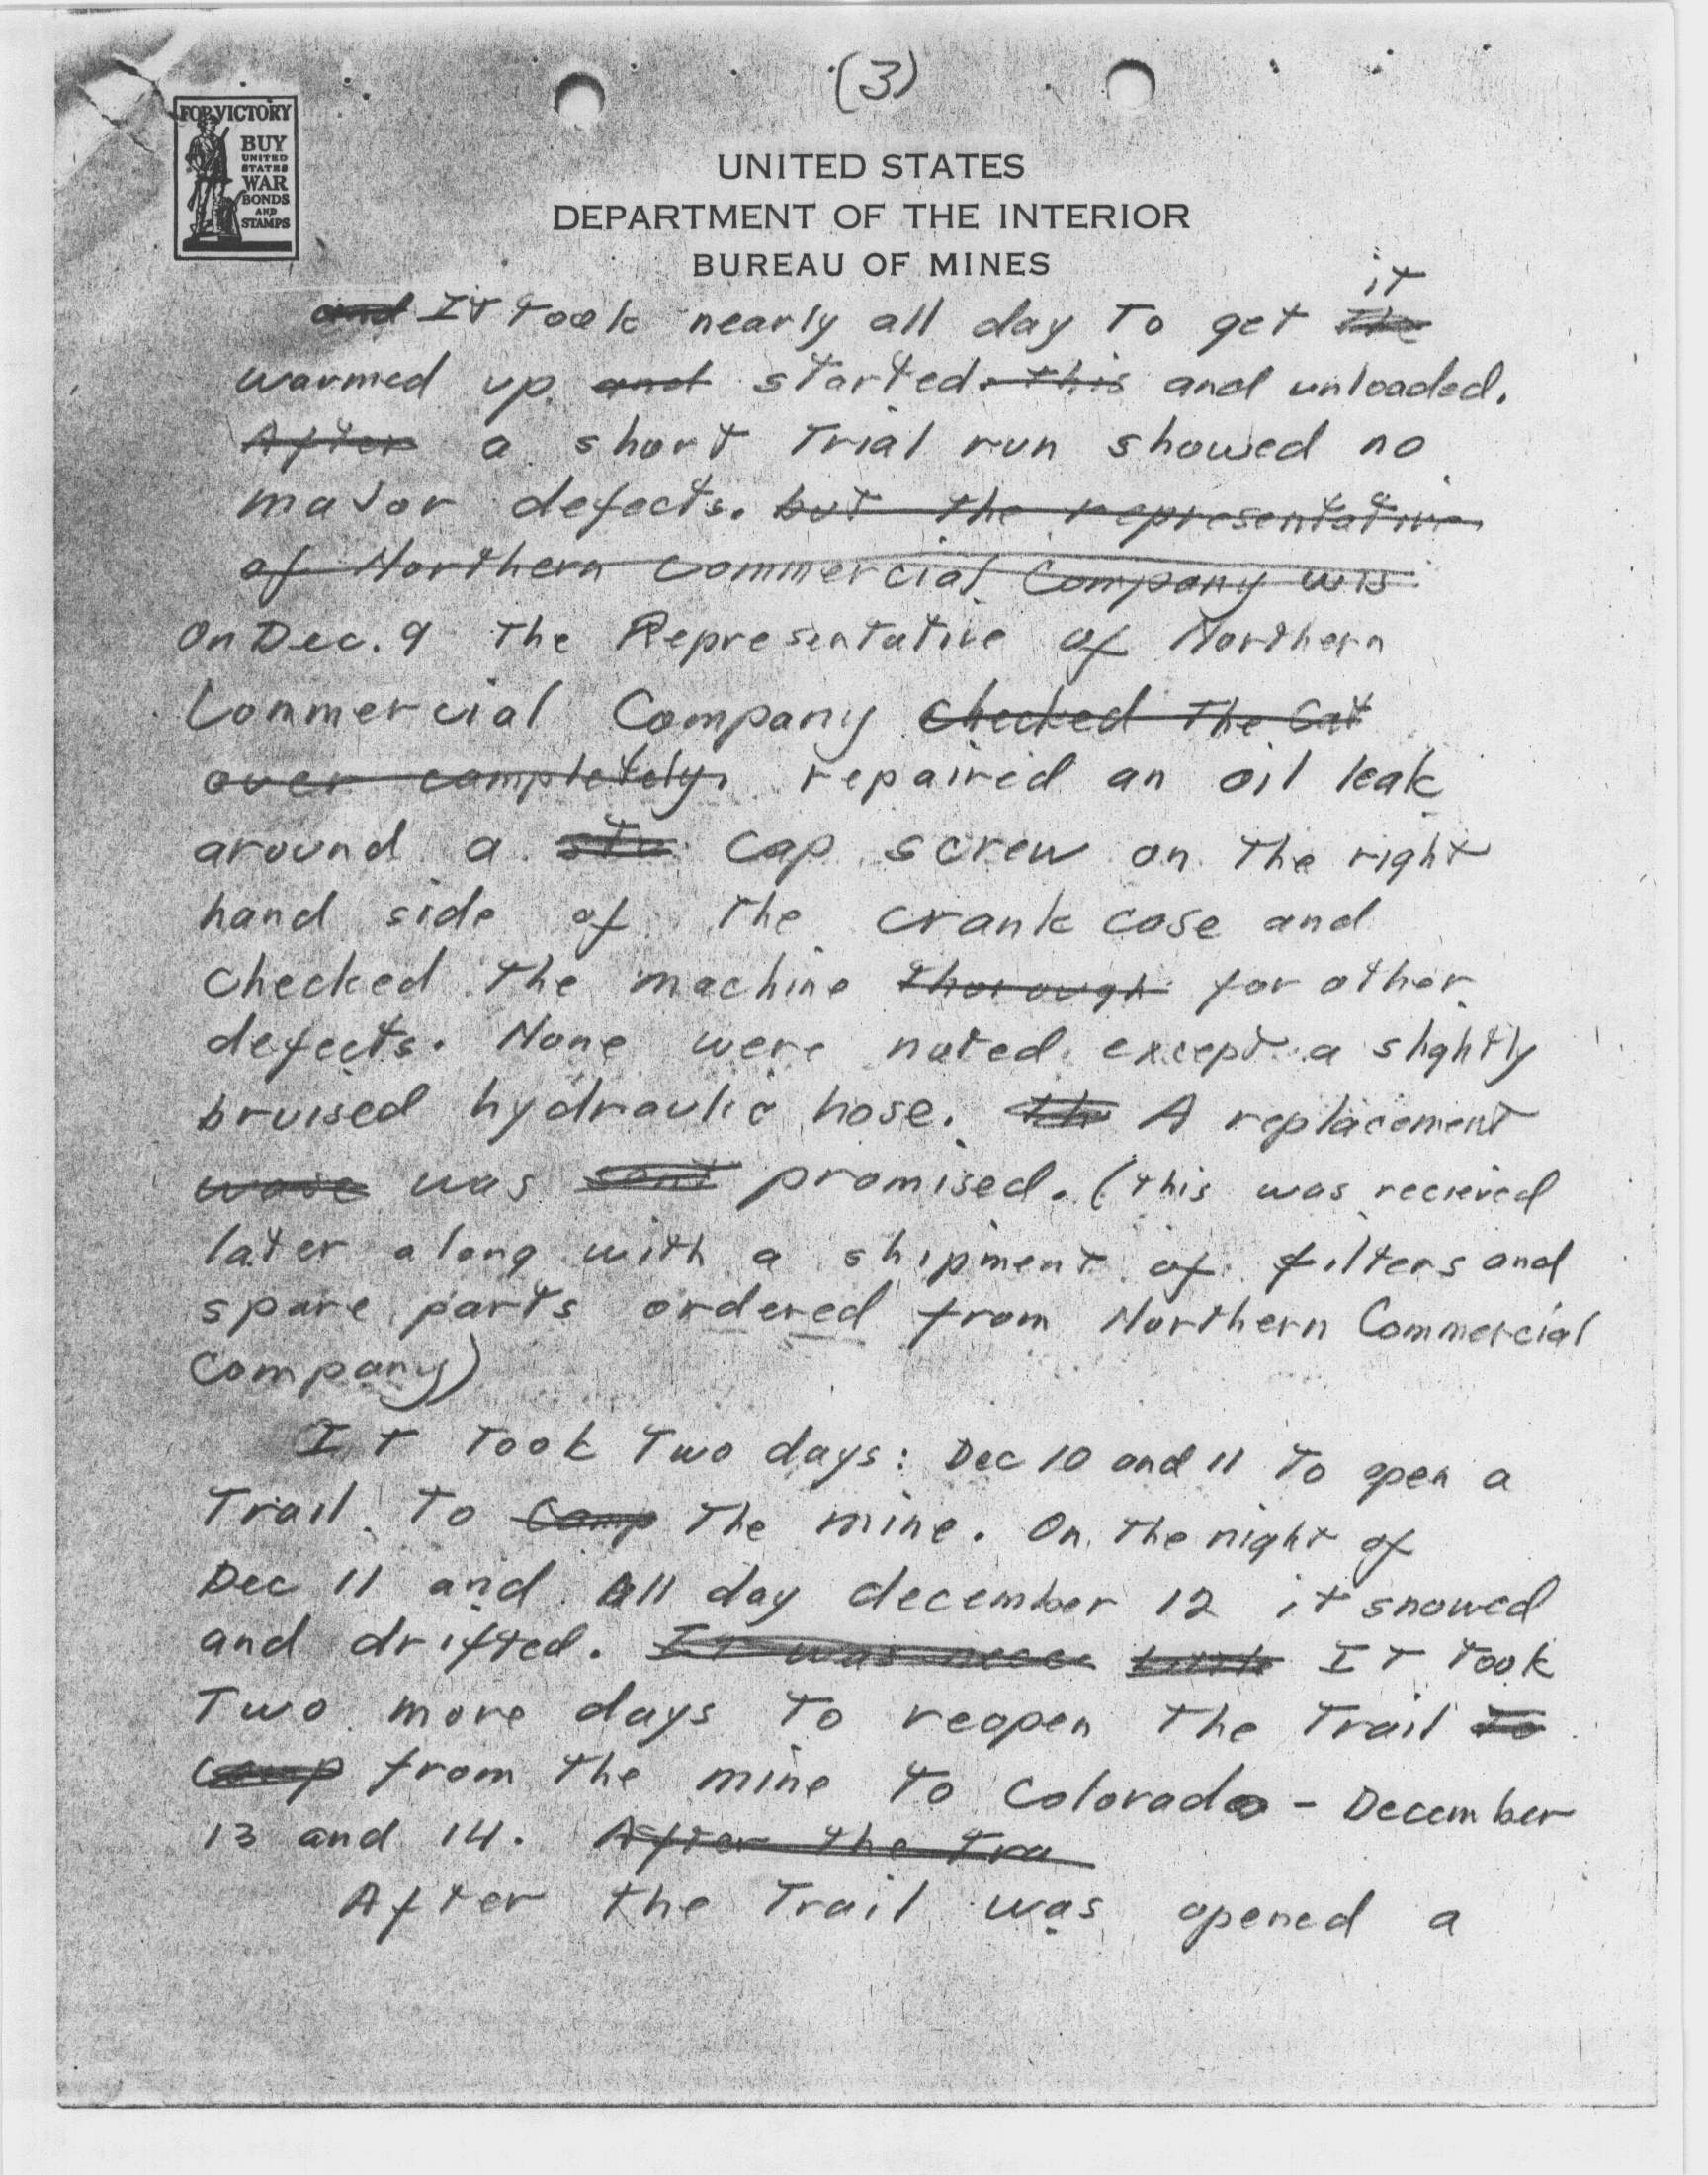 (3)
FOR VICTORY
BUY
UNITED
STATES
WAR
BONDS
AND
STAMPS
UNITED STATES
DEPARTMENT OF THE INTERIOR
BUREAU OF MINES
it
and It took nearly all day to get the
warmed up and started. this and unloaded.
After a short trial run showed no
major defects. but the representative
of Northern Commercial Company wis
On Dec. 9 the Representative of Northern
Commercial Company checked the Cat
over completely. repaired an oil leak
around a stu cap screw on the right
hand side of the crank case and
checked the machine thorough for other
defects. None were noted except a slightly
bruised hydraulic hose. the A replacement
was sent promised. (this was recieved
later along with a shipment of filters and
spare parts ordered from Northern Commercial
Company)
It took two days: Dec 10 and 11 to open a
trail to Camp the mine. On the night of
Dec 11 and All day december 12 it snowed
and drifted. It was nece It took
Two more days to reopen the trail to
camp from the mine to Colorado - December
13 and 14. After the tra
After the trail was opened a